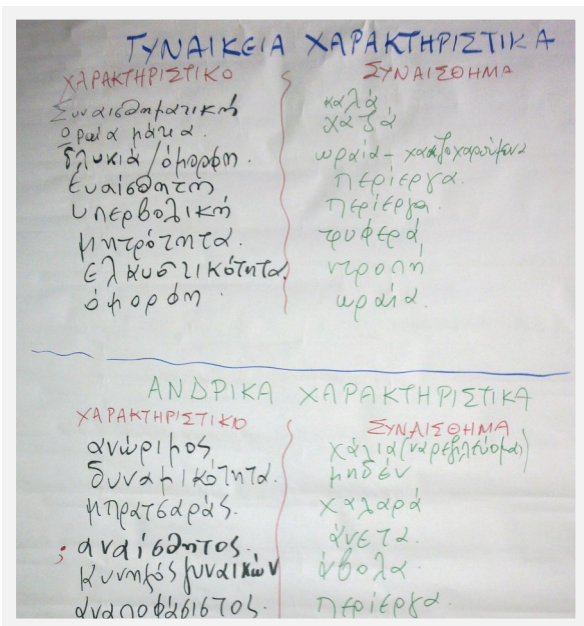 ΓΥΝΑΙΚΕΙΑ ΧΑΡΑΚΤΗΡΙΣΤΙΚΑ
ΧΑΡΑΚΤΗΡΙΣΤΙΚΟ ΣΥΝΑΙΣΘΗΜΑ
Συναισθηματική καλά
Ωραία μάτια. χαζά
Γλυκιά/όμορφη. ωραία -
Ευαίσθητη περίεργα.
Υπερβολική περίεργα.
μητρότητα. τρυφερά
Ελκυστικότητα. ντροπή
όμορφη ωραία.
ΑΝΔΡΙΚΑ ΧΑΡΑΚΤΗΡΙΣΤΙΚΑ
ΧΑΡΑΚΤΗΡΙΣΤΙΚΟ ΣΥΝΑΙΣΘΗΜΑ
ανώριμος χάλια
δυναμικότητα. μηδέν
μπρατσαράς. χαλαρά
; αναίσθητος. άνετα.
Κυνηγός γυναικών άβολα.
αναποφάσιστος. περίεργα.